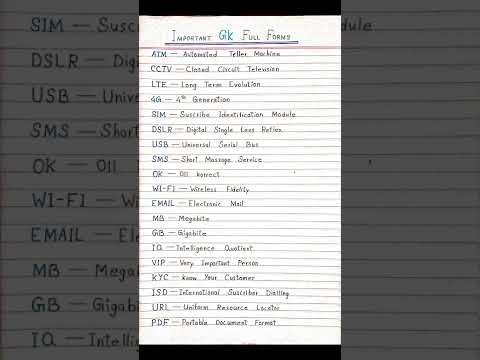 Important GK Full Forms
ATM — Automated Teller Machine
CCTV — Closed Circuit Television
LTE — Long Term Evolution
4G — 4th Generation
SIM — Suscribe Identification Module
DSLR — Digital Single Lens Reflex
USB — Universal Serial Bus
SMS — Short Message Service
OK — Oll korrect
WI-FI — Wireless Fidelity
EMAIL — Electronic Mail
MB — Megabite
GB — Gigabite
IQ — Intelligence Quotient
VIP — Very Important Person
KYC — Know Your Customer
ISD — International Suscriber Dialling
URL — Uniform Resource Locator
PDF — Portable Document Format
SIM — Suscrib
DSLR — Digit
USB — Univer
SMS — Short
OK — Oll
WI-FI — Wi
EMAIL — Ele
MB — Megab
GB — Gigabi
IQ — Intelli
on Module
Reflex
us
ce